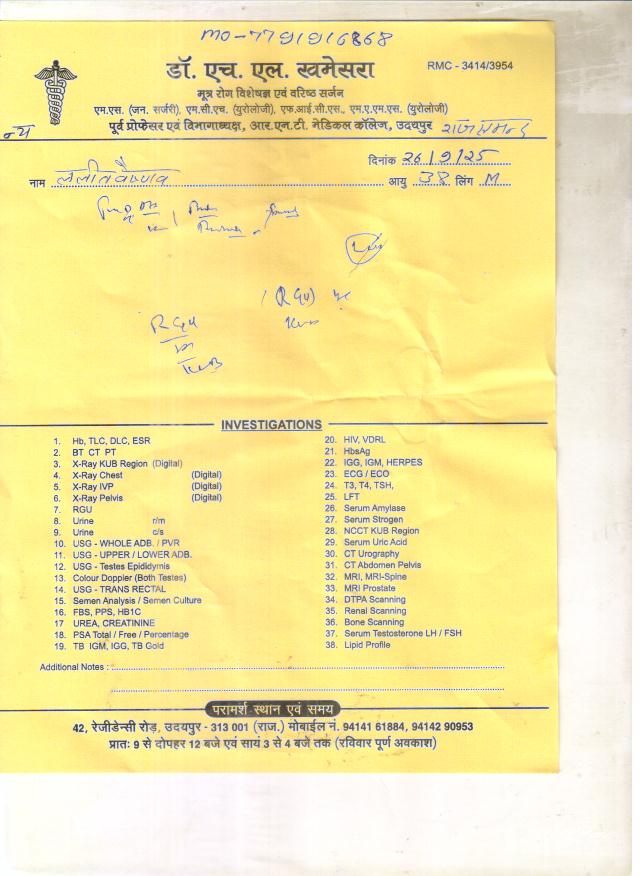 mo-7791916868
डॉ. एच. एल. खमेसरा
RMC - 3414/3954
मूत्र रोग विशेषज्ञ एवं वरिष्ठ सर्जन
एम.एस. (जन. सर्जरी), एम.सी.एच. (युरोलोजी), एफ.आई.सी.एस., एम.ए.एम.एस. (युरोलोजी)
पूर्व प्रोफेसर एवं विभागाध्यक्ष, आर.एन.टी. मेडिकल कॉलेज, उदयपुर राजसमन्द
दिनांक 26/9/25
नाम ललीत वैष्णव आयु 38 लिंग M
(RGU)
RGU
KUB
INVESTIGATIONS
1. Hb, TLC, DLC, ESR
2. BT CT PT
3. X-Ray KUB Region (Digital)
4. X-Ray Chest (Digital)
5. X-Ray IVP (Digital)
6. X-Ray Pelvis (Digital)
7. RGU
8. Urine r/m
9. Urine c/s
10. USG - WHOLE ADB. / PVR
11. USG - UPPER / LOWER ADB.
12. USG - Testes Epididymis
13. Colour Doppler (Both Testes)
14. USG - TRANS RECTAL
15. Semen Analysis / Semen Culture
16. FBS, PPS, HB1C
17 UREA, CREATININE
18. PSA Total / Free / Percentage
19. TB IGM, IGG, TB Gold
20. HIV, VDRL
21. HbsAg
22. IGG, IGM, HERPES
23. ECG / ECO
24. T3, T4, TSH,
25. LFT
26. Serum Amylase
27. Serum Strogen
28. NCCT KUB Region
29. Serum Uric Acid
30. CT Urography
31. CT Abdomen Pelvis
32. MRI, MRI-Spine
33. MRI Prostate
34. DTPA Scanning
35. Renal Scanning
36. Bone Scanning
37. Serum Testosterone LH / FSH
38. Lipid Profile
Additional Notes :
परामर्श स्थान एवं समय
42, रेजीडेन्सी रोड़, उदयपुर - 313 001 (राज.) मोबाईल नं. 94141 61884, 94142 90953
प्रात: 9 से दोपहर 12 बजे एवं सायं 3 से 4 बजे तक (रविवार पूर्ण अवकाश)